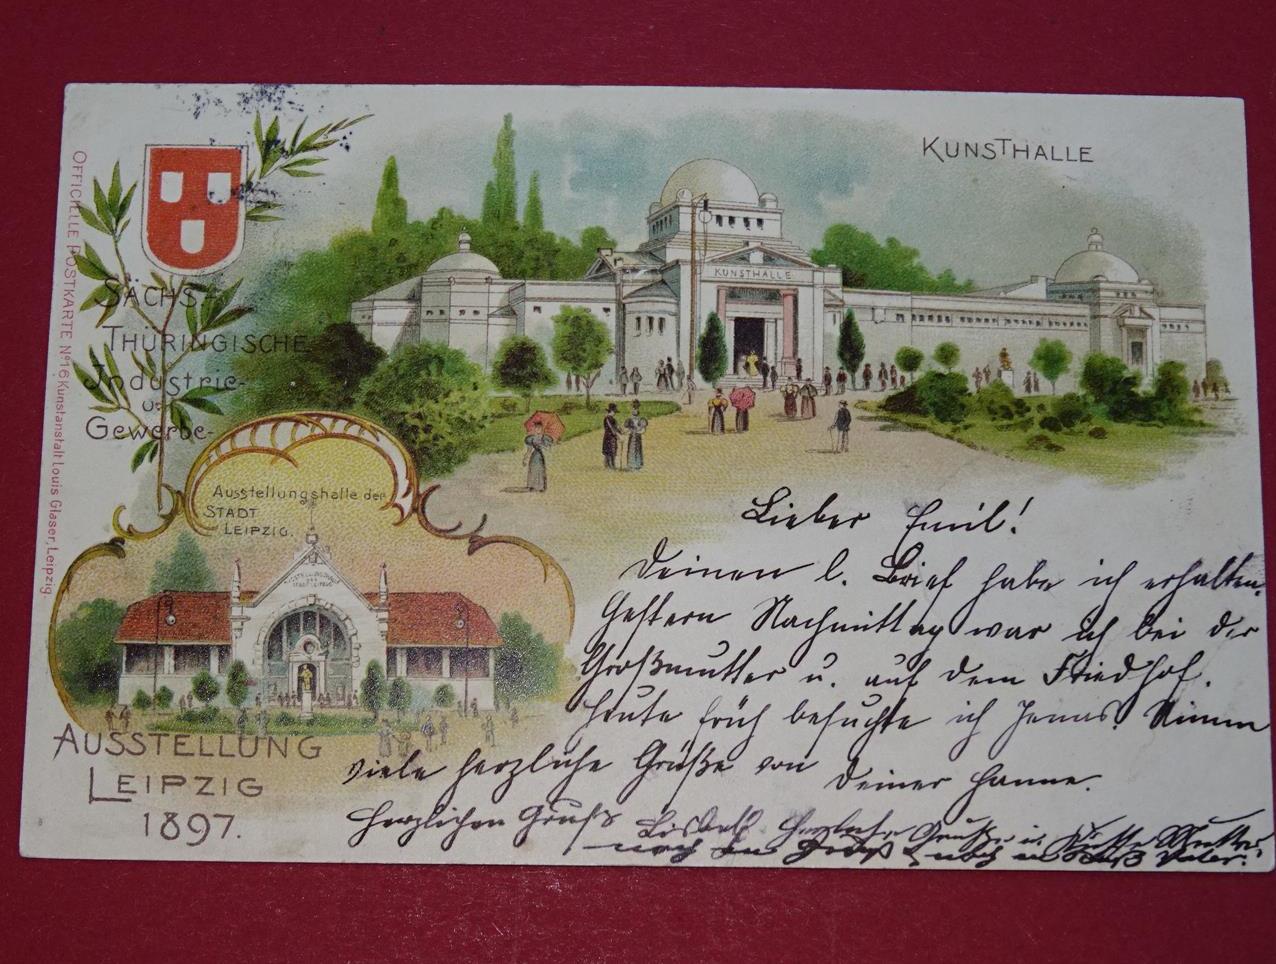 OFFICIELLE POSTKARTE No 16 Kunstanstalt Louis Glaser, Leipzig.
SÄCHS.-
THÜRINGISCHE
Industrie-
u.
Gewerbe-
KUNSTHALLE
KUNSTHALLE
Ausstellungshalle der
STADT
LEIPZIG.
AUSSTELLUNG
LEIPZIG
1897.
Lieber Emil!
Deinen l. Brief habe ich erhalten.
Gestern Nachmittag war ich bei der
Großmutter u. auf dem Friedhof.
Heute früh besuchte ich Nimm
viele herzliche Grüße von Deiner Hanne.
Herzlichen Gruß Herzliche Grüße u.